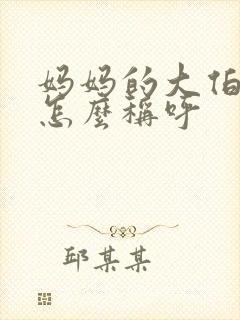 妈妈的大伯
怎麼稱呼
邱某某